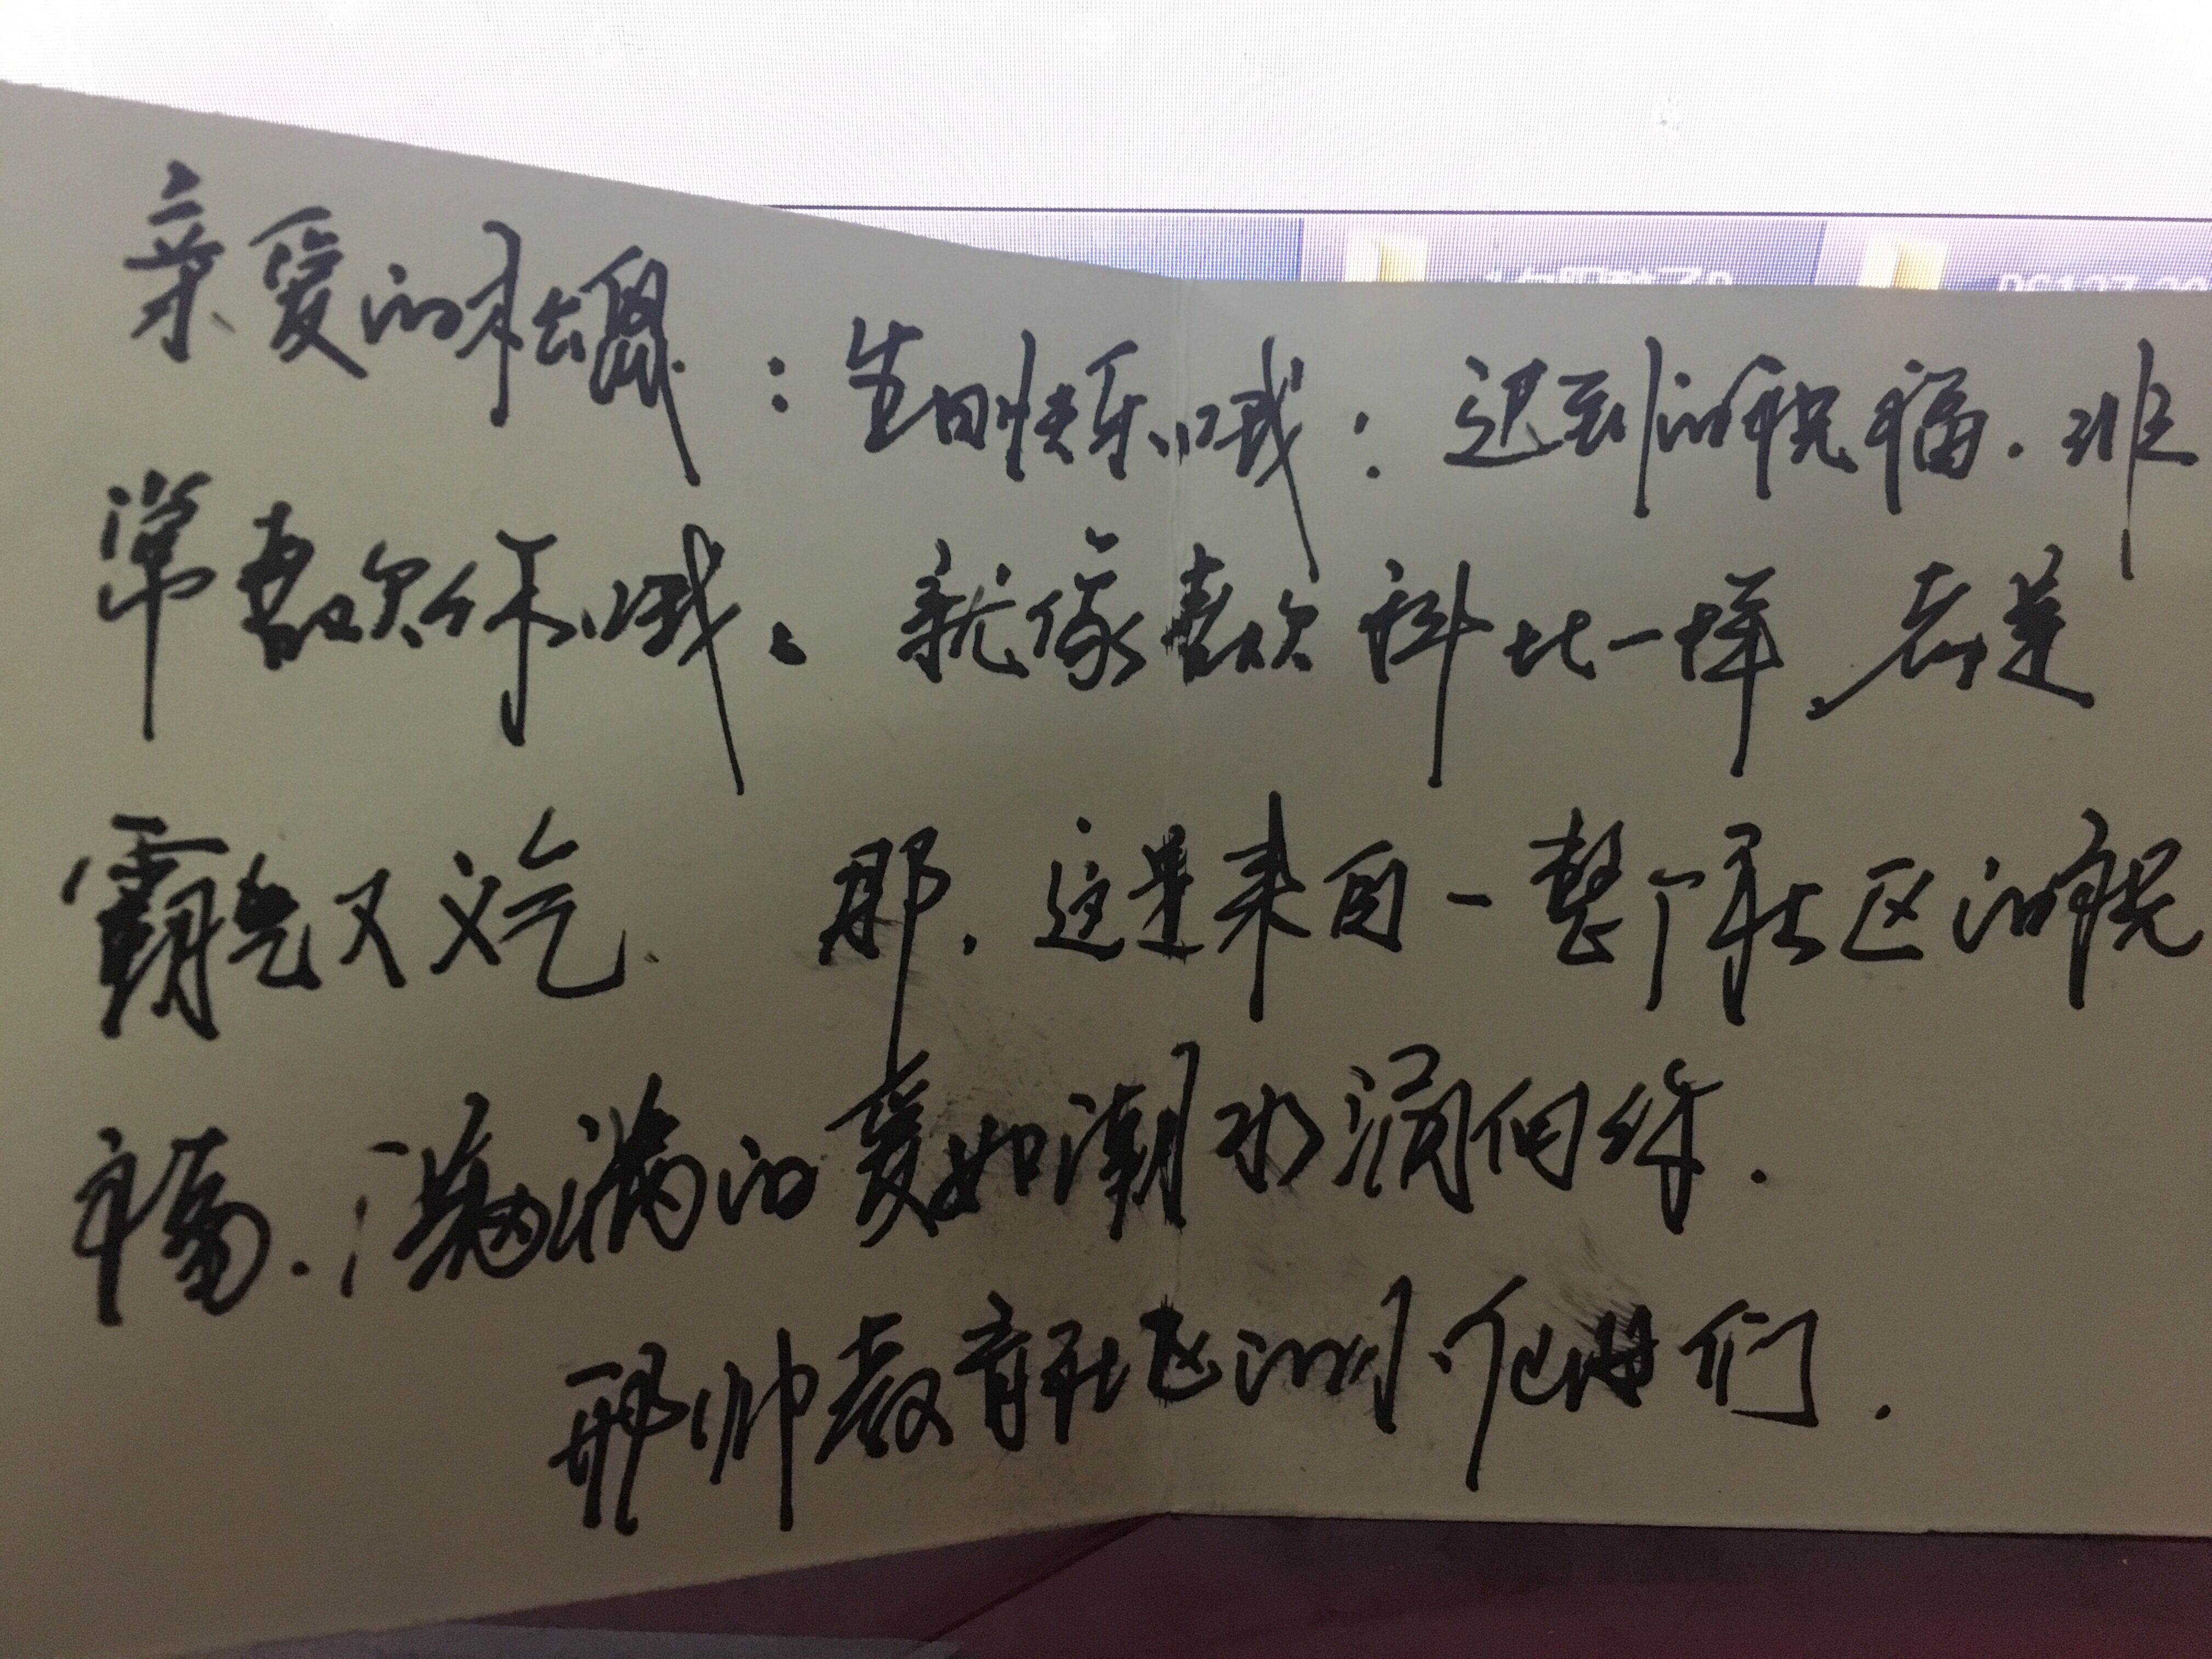 亲爱的
：生日快乐哦：迟到的祝福.非
常喜欢你哦、就像喜欢科比一样.老是
霸气又义气. 那.这是来自一整个社区的祝
福.满满的爱如潮水涌向你.
邢帅教育社区的小伙伴们.